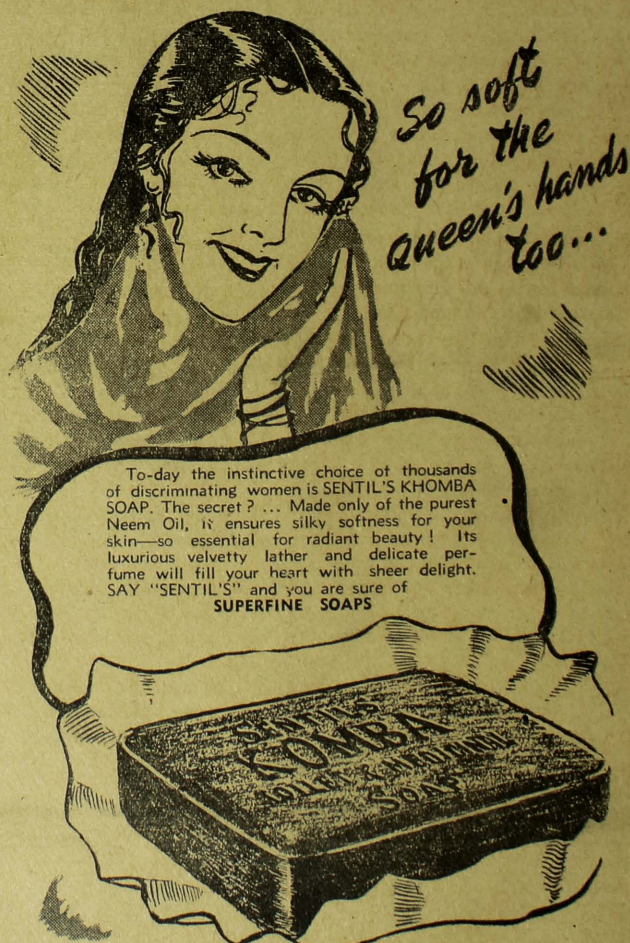 So soft
for the
Queen's hands
too...
To-day the instinctive choice of thousands
of discriminating women is SENTIL'S KHOMBA
SOAP. The secret ? ... Made only of the purest
Neem Oil, it ensures silky softness for your
skin—so essential for radiant beauty ! Its
luxurious velvetty lather and delicate per-
fume will fill your heart with sheer delight.
SAY "SENTIL'S" and you are sure of
SUPERFINE SOAPS
SENTILS
KOMBA
TOILET & MEDICINAL
SOAP